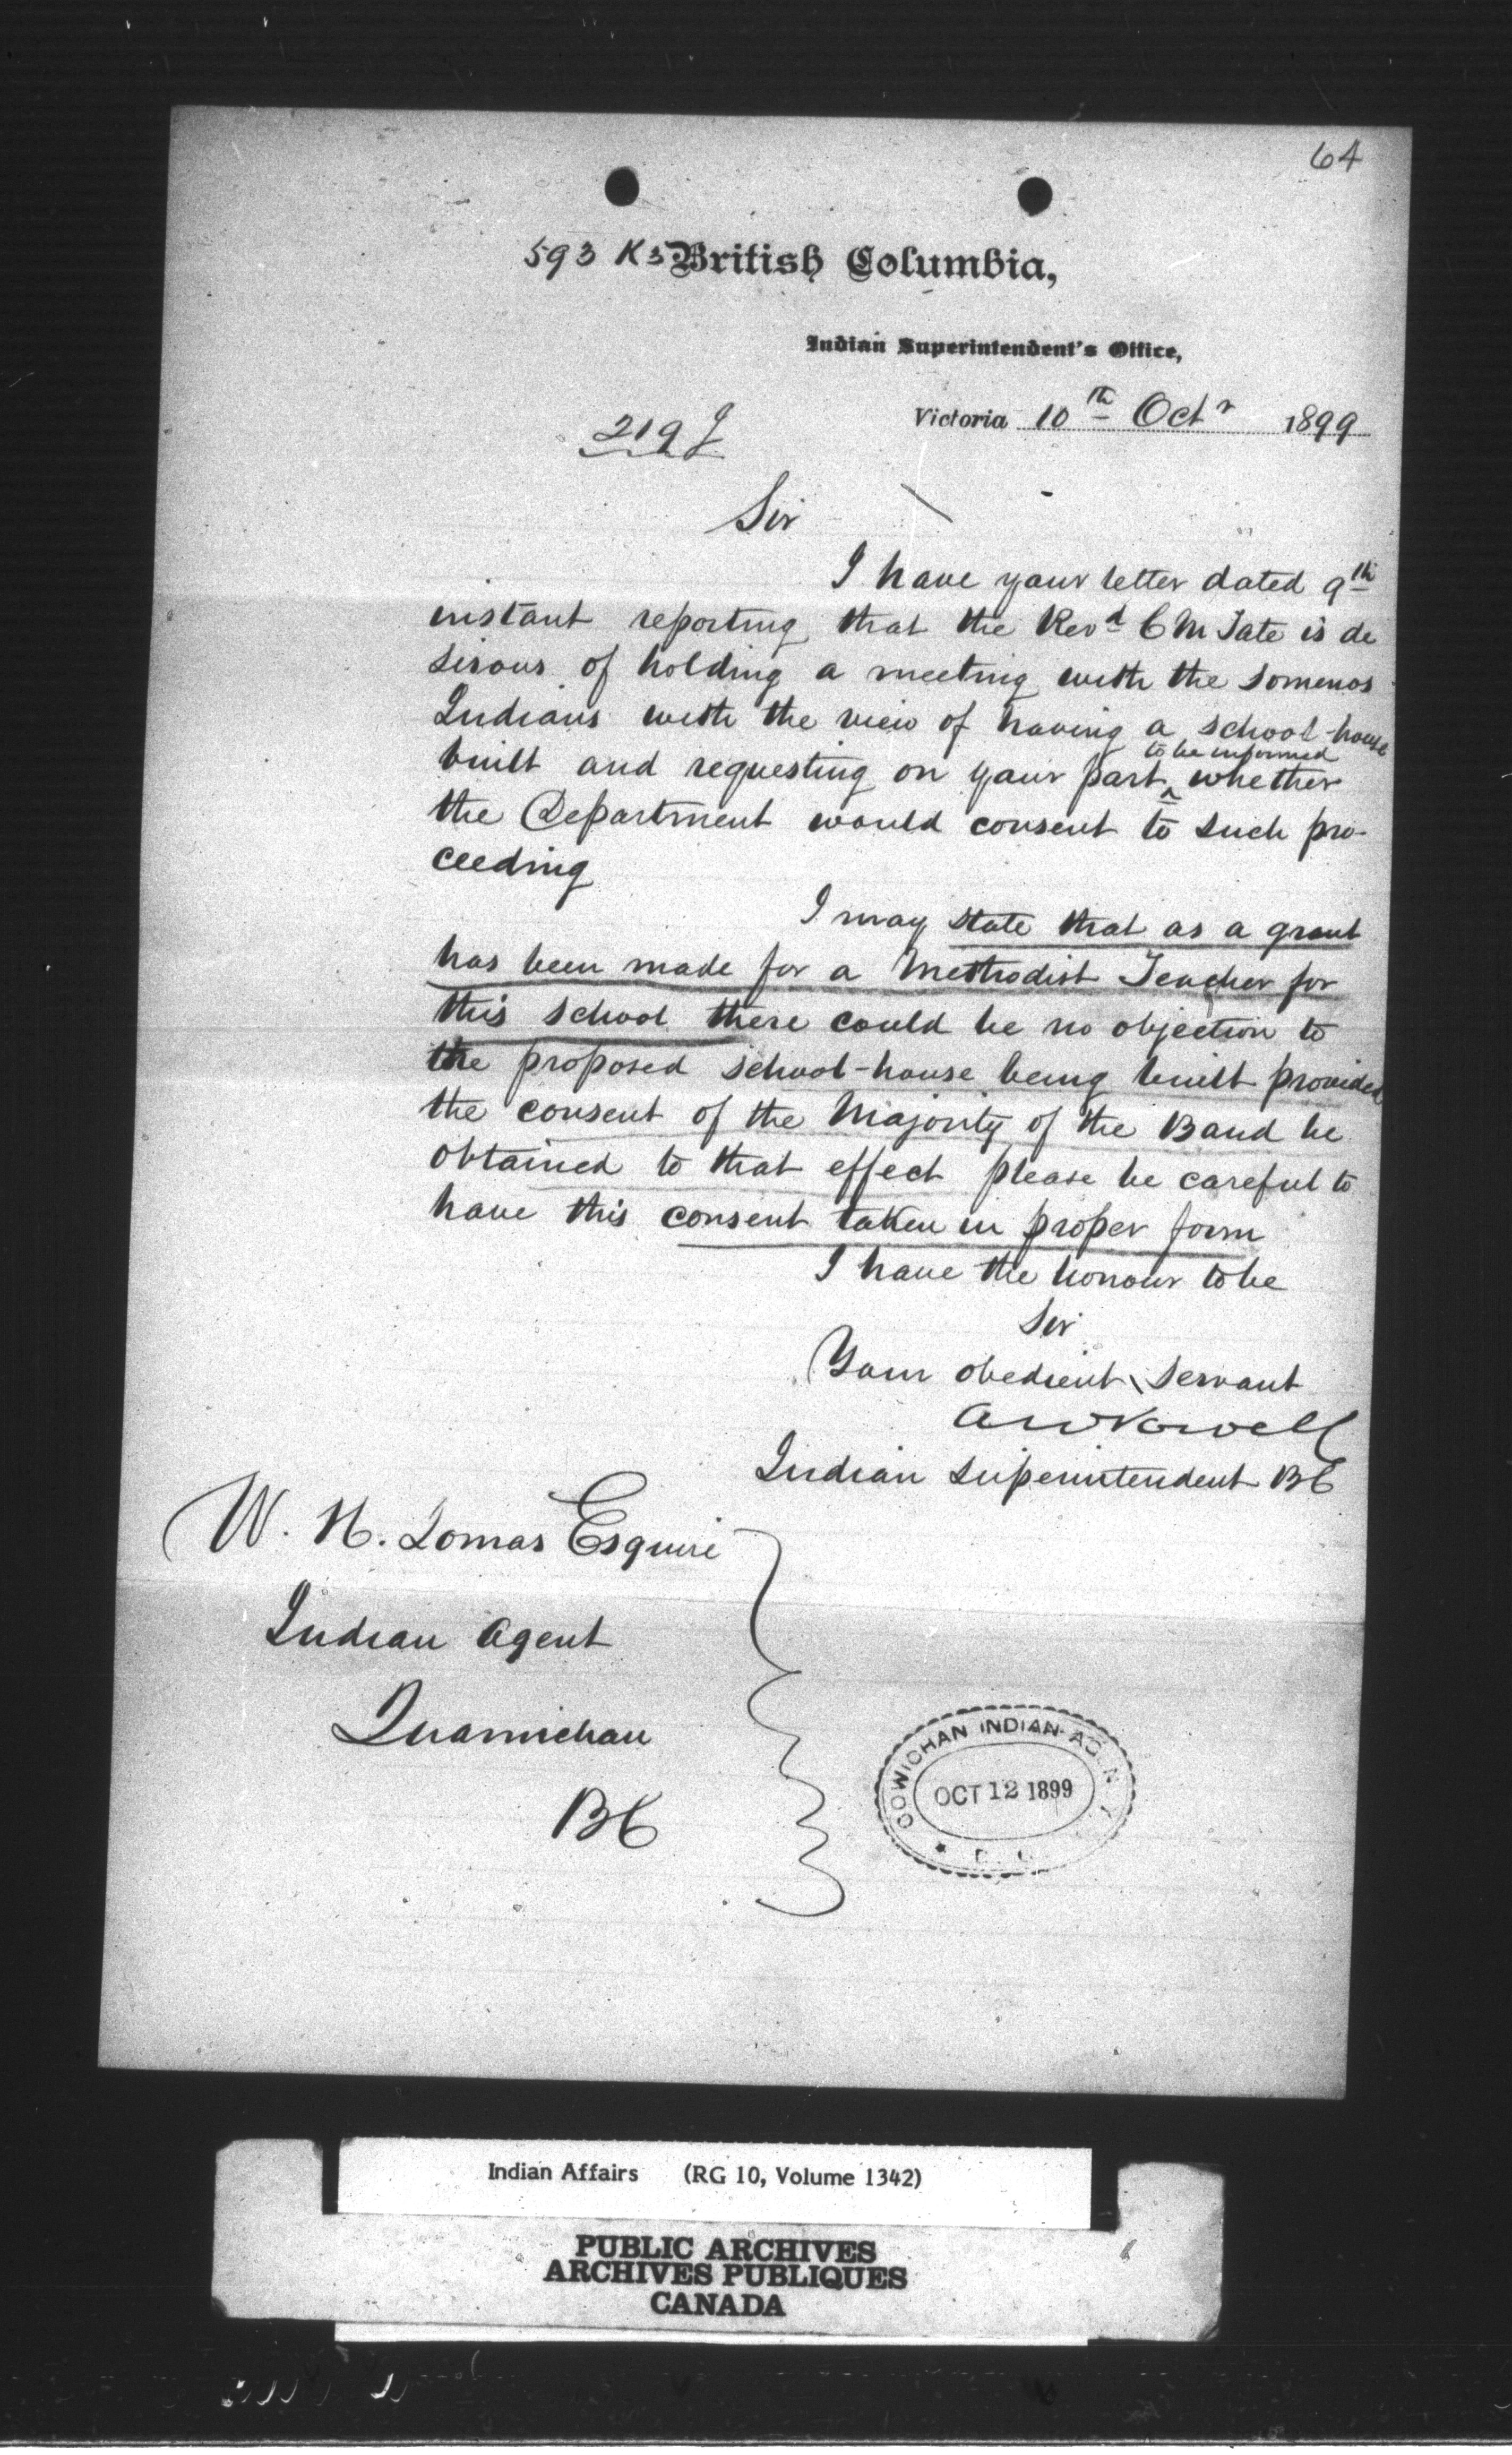 64
593 K3 British Columbia,
Indian Superintendent's Office,
Victoria 10th Octr 1899
219
Sir
I have your letter dated 9th
instant reporting that the Revd C M Tate is de
sirous of holding a meeting with the Somenos
Indians with the view of having a school-house
to be informed
built and requesting on your part ^ whether
the Department would consent to such pro-
ceeding
I may state that as a grant
has been made for a Methodist Teacher for
this school there could be no objection to
the proposed school-house being built provided
the consent of the Majority of the Band be
obtained to that effect please be careful to
have this consent taken in proper form
I have the honour to be
Sir
Your obedient servant
A W Vowell
Indian Superintendent BC
W. H. Lomas Esquire
Indian Agent
Quamichan
BC
COWICHAN INDIAN AGENCY
OCT 12 1899
★ B. C.
Indian Affairs (RG 10, Volume 1342)
PUBLIC ARCHIVES
ARCHIVES PUBLIQUES
CANADA